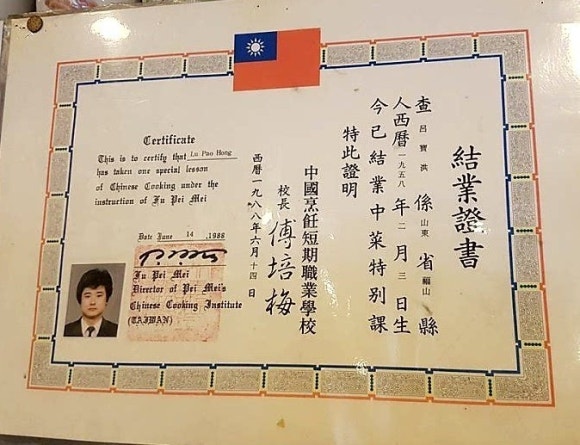 結業證書
查呂寶洪係山東省福山縣
人西曆一九五八年二月三日生
今已結業中菜特別課
特此證明
中國烹飪短期職業學校
校長 傅培梅
西曆一九八八年六月十四日
Certificate
This is to certify that Lu Pao Hong
has taken one special lesson
of Chinese Cooking under the
instruction of Fu Pei Mei
Date June 14 ,1988
Fu Pei Mei
Director of Pei Mei's
Chinese Cooking Institute
(TAIWAN)